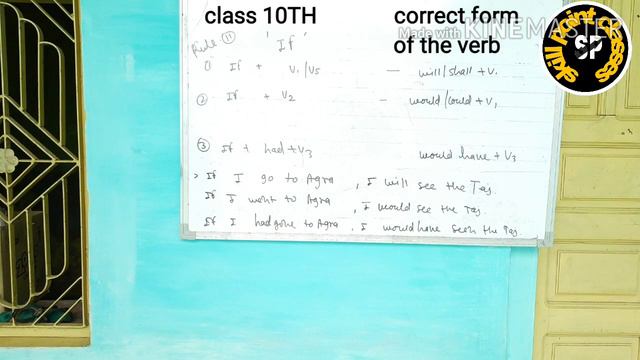 class 10TH
correct form
of the verb
Made with KINEMASTER
skill point classes
SP
Rule 11 'If'
1) If + V1/V5 — will/shall + V1
2) If + V2 — would/could + V1
3) If + had + V3 would have + V3
> If I go to Agra, I will see the Taj
If I went to Agra, I would see the Taj.
If I had gone to Agra, I would have seen the Taj.